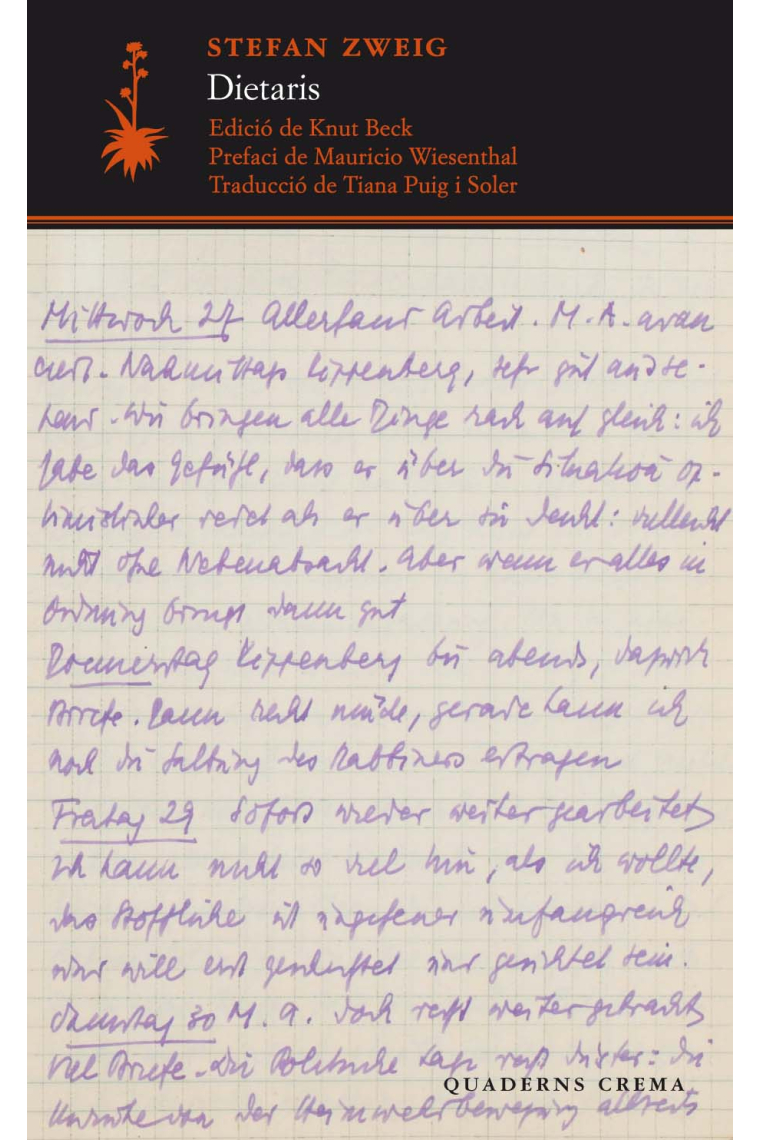 STEFAN ZWEIG
Dietaris
Edició de Knut Beck
Prefaci de Mauricio Wiesenthal
Traducció de Tiana Puig i Soler
Mittwoch 27 Allerhand Arbeit. M. A. avan
ciert. Nachmittags Kippenberg, sehr gut
Wir bringen alle Dinge rasch auf gleich: ich
habe das Gefühl, dass er über die Situation op-
timistischer redet als er über sie denkt: vielleicht
nicht ohne Nebenabsicht. Aber wenn er alles in
Ordnung bringt dann gut
Donnerstag Kippenberg bis abends,
Briefe. Dann recht müde, gerade kann ich
noch die des Rabbiners ertragen
Freitag 29 Sofort wieder weiter gearbeitet
Ich kann nicht so viel tun, als ich wollte,
das Stoffliche ist ungeheuer umfangreich
und will erst und gesichtet sein.
Samstag 30 M. A. doch recht weiter gebracht
viel Briefe. Die Politische Lage recht düster: die
QUADERNS CREMA
von der Heimwehrbewegung allseits